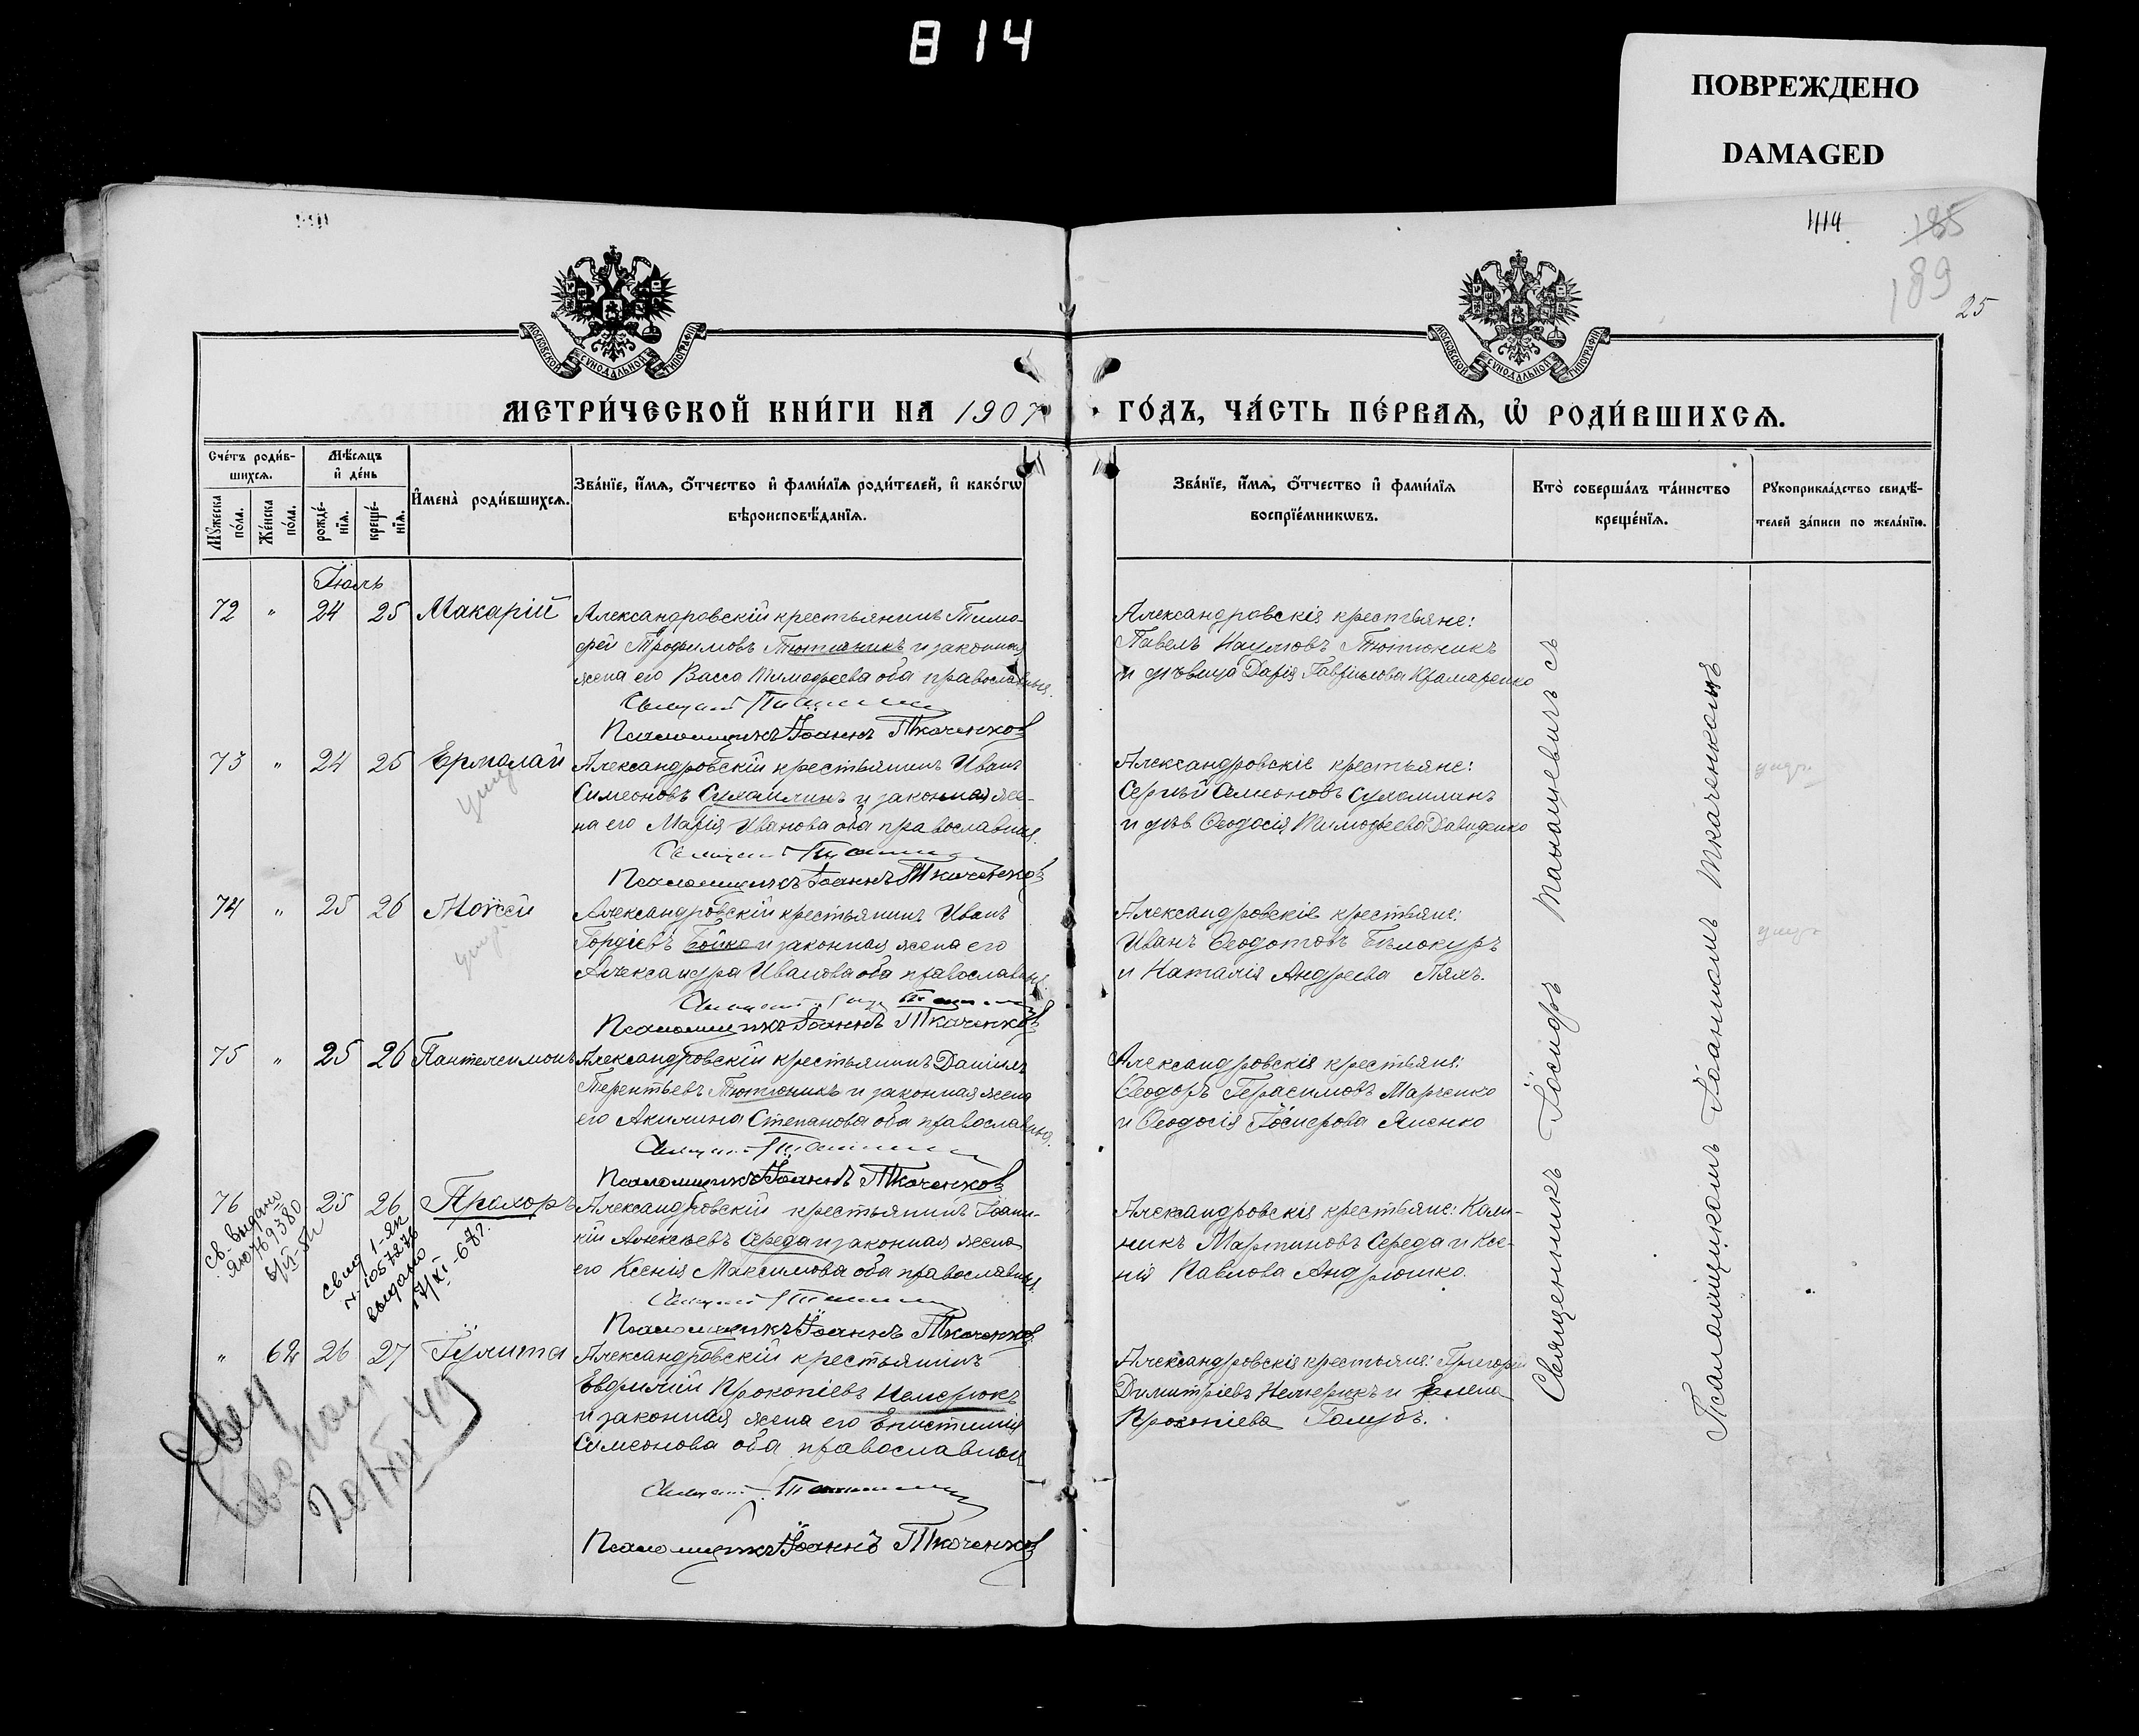 814
ПОВРЕЖДЕНО
DAMAGED
414
185
189
25
МОСКОВСКОЙ СѴНОДАЛЬНОЙ ТИПОГРАФІИ
МОСКОВСКОЙ СѴНОДАЛЬНОЙ ТИПОГРАФІИ
МЕТРИ́ЧЕСКОЙ КНИ́ГИ НА 1907 ГО́ДЪ, ЧА́СТЬ ПЕ́РВАЯ, Ѿ РОДИ́ВШИХСЯ.
Сче́тъ роди́в-
шихся.
Мѣ́сяцъ
и҆ де́нь
Мꙋ́жеска
по́ла.
Же́нска
по́ла.
рожде́-
нїя.
креще́-
нїя.
И҆мена̀ роди́вшихся.
Зва́нїе, и҆́мя, ѻ҆́тчество и҆ фами́лїя роди́телей, и҆ како́гѡ
вѣроисповѣ́данїя.
Зва́нїе, и҆́мя, ѻ҆́тчество и҆ фами́лїя
воспрїе́мникѡвъ.
Кто̀ соверша́лъ та́инство
креще́нїя.
Рꙋкоприкла́дство свидѣ́-
телей за́писи по жела́нїю.
Іюль
72 " 24 25 Макарій
Александровскій крестьянинъ Тимо-
фей Трофимовъ Тютюникъ и законная
жена его Васса Тимофеева оба православныя.
Псаломщикъ Іоаннъ Ткаченков
Александровскія крестьяне:
Павелъ Наумовъ Тютюникъ
и дѣвица Дарія Гавріилова Крамаренко
73 " 24 25 Ермолай
умер
Александровскій крестьянинъ Иванъ
Симеоновъ Сухомлинъ и законная же-
на его Марія Иванова оба православныя.
Псаломщикъ Іоаннъ Ткаченков
Александровскіе крестьяне:
Сергѣй Симеоновъ Сухомлинъ
и дѣв. Ѳеодосія Тимофеева Давиденко
умер.
74 " 25 26 Моѵсей
умер
Александровскій крестьянинъ Иванъ
Гордіевъ Бойко и законная жена его
Александра Иванова оба православныя.
Псаломщикъ Іоаннъ Ткаченков
Александровскіе крестьяне:
Иванъ Ѳеодотовъ Бѣлокуръ
и Наталія Андреева Лялъ.
умер
75 " 25 26 Пантелеимонъ
Александровскій крестьянинъ Даніилъ
Терентьевъ Тютюникъ и законная жена
его Акилина Степанова оба православныя.
Псаломщикъ Іоаннъ Ткаченков
Александровскія крестьяне:
Ѳеодоръ Герасимовъ Марченко
и Ѳеодосія Іосифова Яценко
76 25 26 Прохоръ
Св. выдано
ЯЮ 169380
Свид 1-ЯК
N-1057276
выдано
17/XI-67г.
Александровскій крестьянинъ Іоанни-
кій Алексѣевъ Середа и законная жена
его Ксенія Максимова оба православныя.
Псаломщикъ Іоаннъ Ткаченков
Александровскія крестьяне: Кали-
никъ Мартиновъ Середа и Ксе-
нія Павлова Андрюшко.
" 62 26 27 Іулита
Александровскій крестьянинъ
Евфимій Прокопіевъ Немерюкъ
и законная жена его Епистимія
Симеонова оба православныя
Псаломщикъ Іоаннъ Ткаченков
Александровскія крестьяне: Григорій
Димитріевъ Немерюкъ и Елена
Прокопіева Голубъ.
Священникъ Іосифъ Танацевичъ съ
Псаломщикомъ Іоанномъ Ткаченкомъ